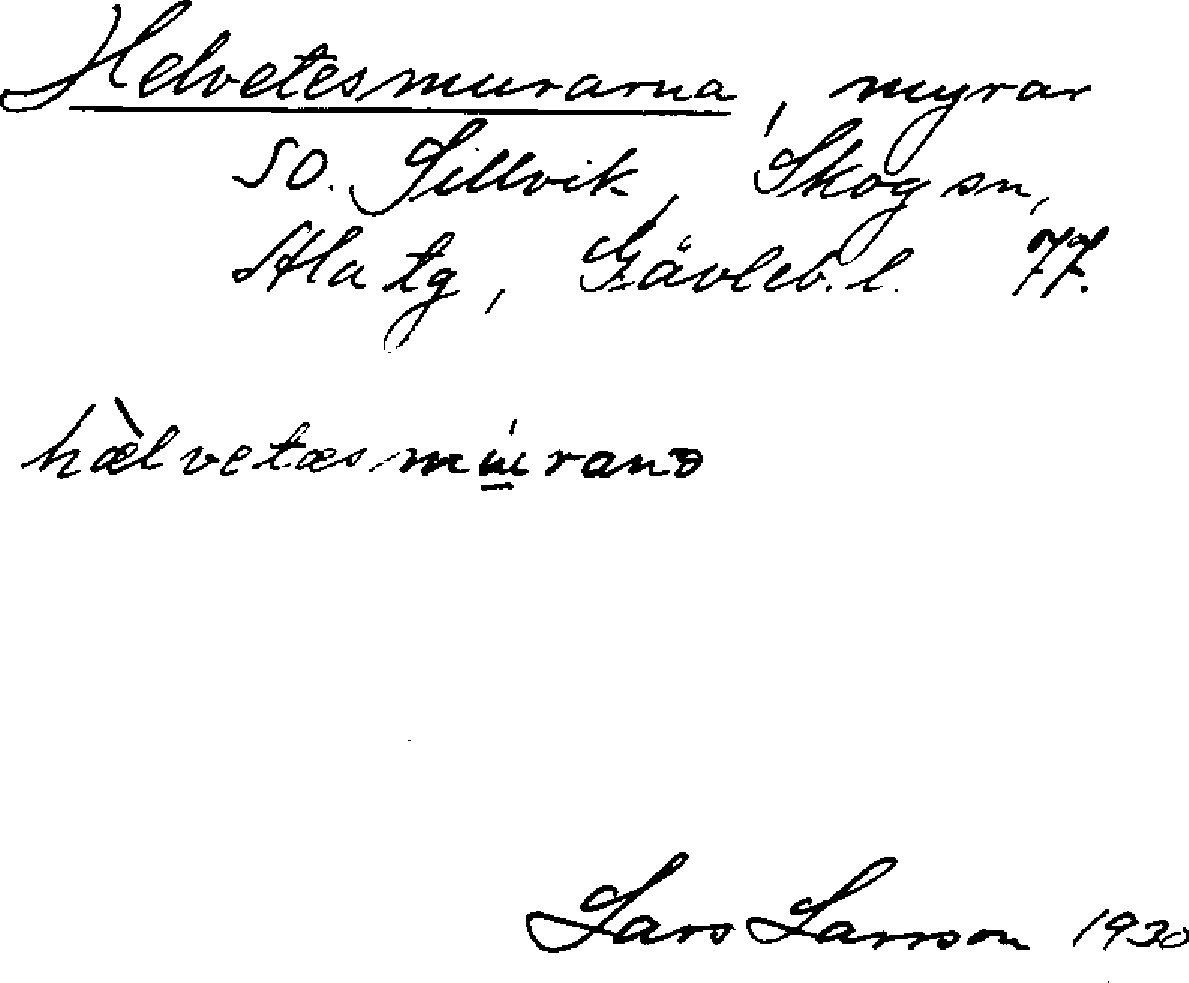 Helvetesmurarna, myrar
SO. Sillvik, Skog sn,
Ala tg, Gävleb. l. 77.
hæ̀lvetæsmúranə
Lars Larsson 1930